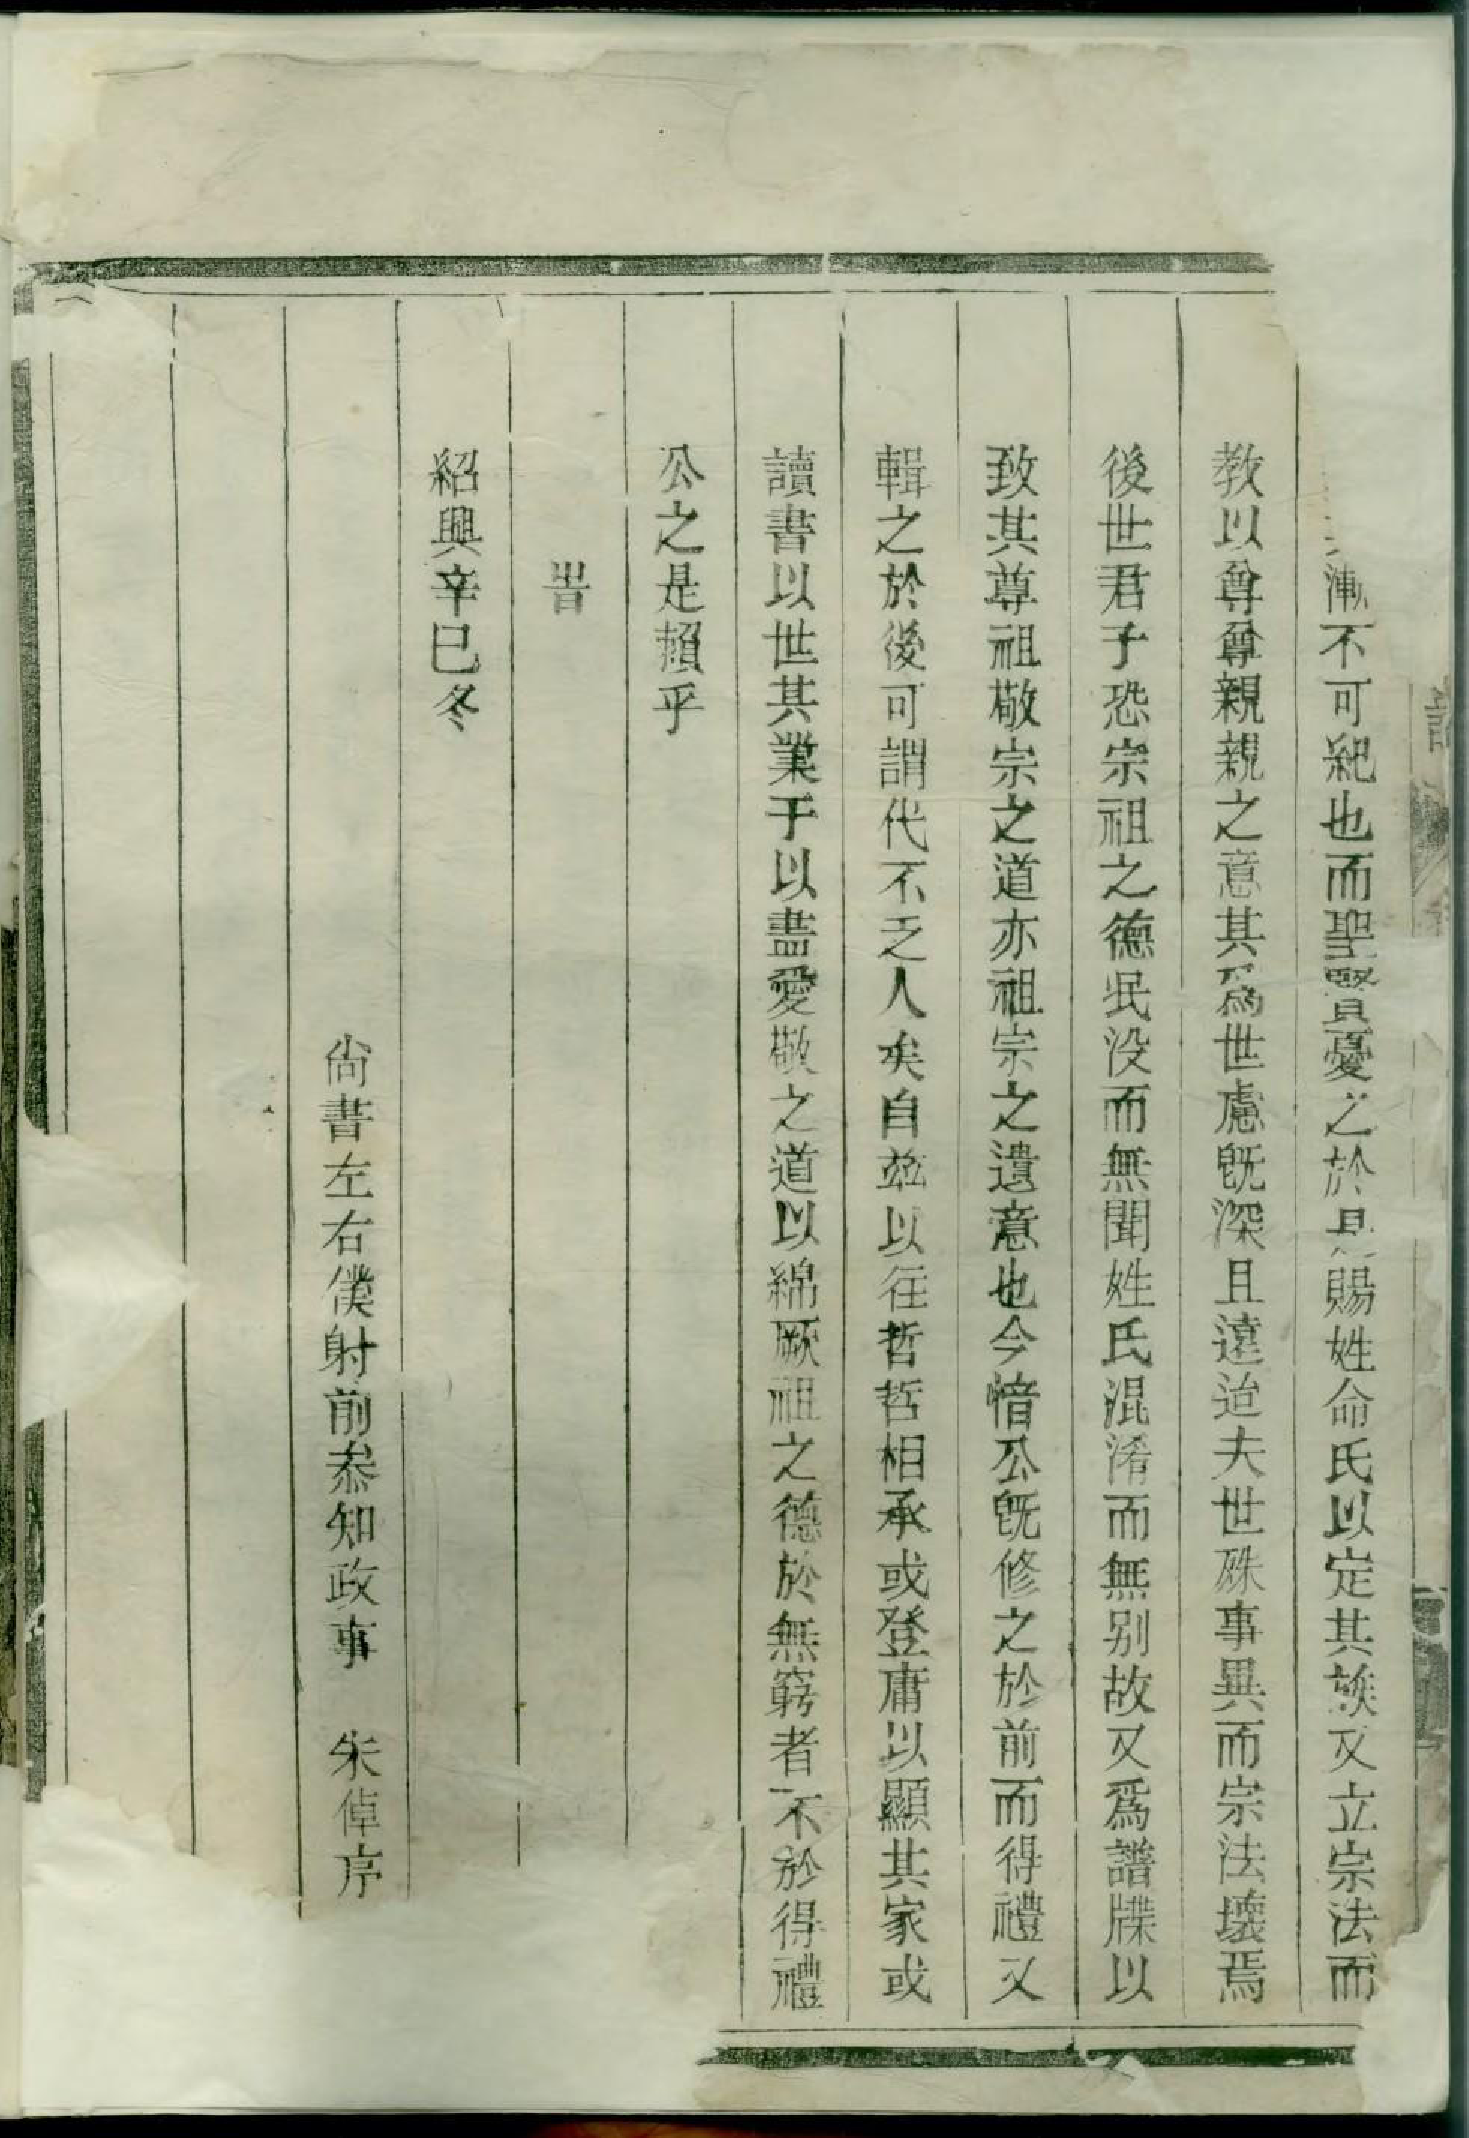 漸不可紀也而聖賢憂之於是賜姓命氏以定其族又立宗法而
教以尊尊親親之意其爲世慮旣深且遠迨夫世殊事異而宗法壞焉
後世君子恐宗祖之德泯没而無聞姓氏混淆而無别故又爲譜牒以
致其尊祖敬宗之道亦祖宗之遺意也今愔公旣修之於前而得禮又
輯之於後可謂代不乏人矣自茲以往哲哲相承或登庸以顯其家或
讀書以世其業于以盡愛敬之道以綿厥祖之德於無窮者不於得禮
公之是賴乎
旹
紹興辛巳冬
尙書左右僕射前叅知政事 朱倬序